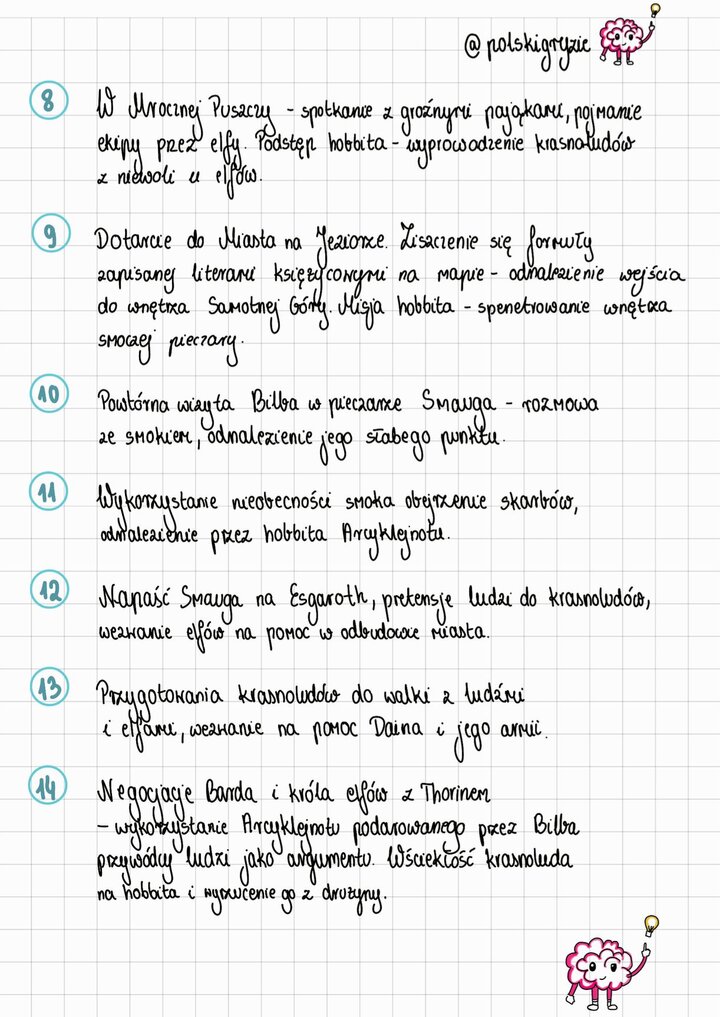 @polskigryzie
8 W Mrocznej Puszczy - spotkanie z groźnymi pająkami, pojmanie
ekipy przez elfy. Podstęp hobbita - wyprowadzenie krasnoludów
z niewoli u elfów.
9 Dotarcie do Miasta na Jeziorze. Ziszczenie się formuły
zapisanej literami księżycowymi na mapie - odnalezienie wejścia
do wnętrza Samotnej Góry. Misja hobbita - spenetrowanie wnętrza
smoczej pieczary.
10 Powtórna wizyta Bilba w pieczarze Smauga - rozmowa
ze smokiem, odnalezienie jego słabego punktu.
11 Wykorzystanie nieobecności smoka obejrzenie skarbów,
odnalezienie przez hobbita Arcyklejnotu.
12 Napaść Smauga na Esgaroth, pretensje ludzi do krasnoludów,
wezwanie elfów na pomoc w odbudowie miasta.
13 Przygotowania krasnoludów do walki z ludźmi
i elfami, wezwanie na pomoc Daina i jego armii.
14 Negocjacje Barda i króla elfów z Thorinem
- wykorzystanie Arcyklejnotu podarowanego przez Bilba
przywódcy ludzi jako argumentu. Wściekłość krasnoluda
na hobbita i wyrzucenie go z drużyny.